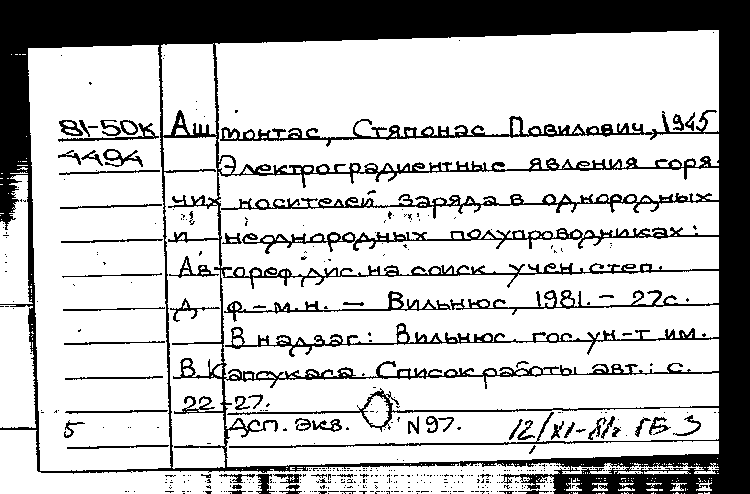 81-50к Аштонтас, Стяпонас Повилович, 1945
4494 Электроградиентные явления горя-
чих носителей заряда в однородных
и неоднородных полупроводниках:
Автореф. дис. на соиск. учен. степ.
д. ф.-м.н. — Вильнюс, 1981. - 27с.
В надзаг.: Вильнюс. гос. ун-т им.
В. Капсукаса. Список работы авт.: с.
22-27.
5 Асп. экв. N97. 12/XI-81г ГБ З